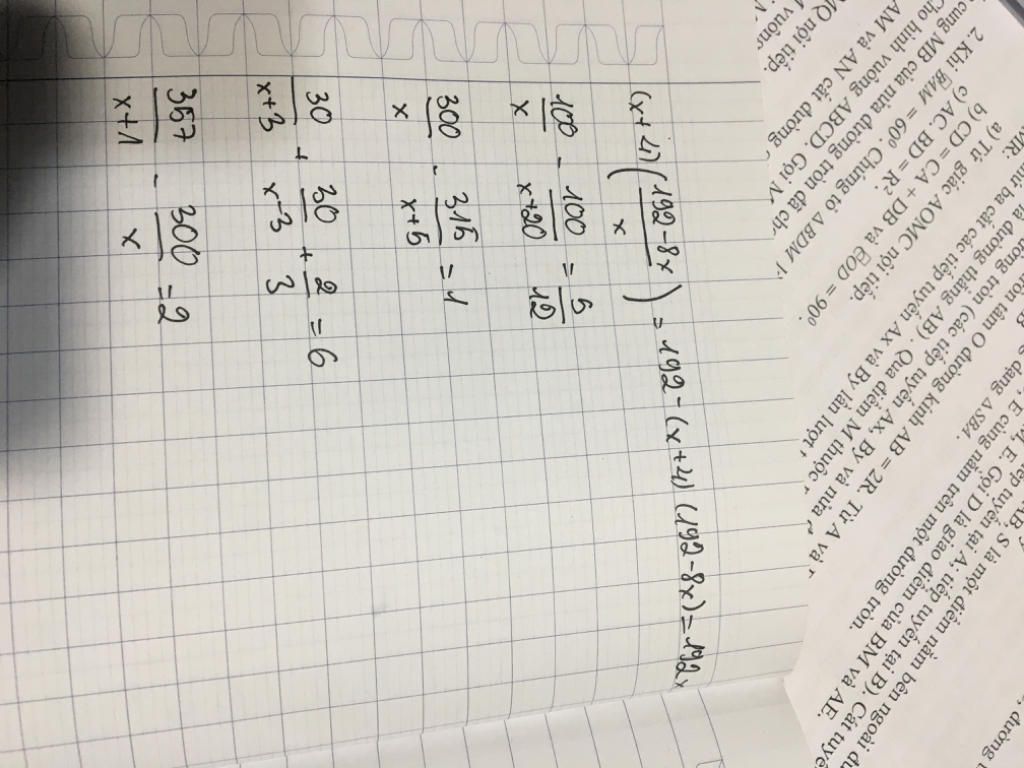 đường t
AB, S là một điểm nằm bên ngoài đư
tiếp tuyến tại A, tiếp tuyến tại B). Cát tuyế
E. Gọi D là giao điểm của BM và AE.
, E cùng nằm trên một đường tròn.
dạng ΔSBA.
tròn tâm O đường kính AB = 2R. Từ A và
đường tròn (các tiếp tuyến Ax, By và nửa
đường thẳng AB). Qua điểm M thuộc
thứ ba cắt các tiếp tuyến Ax và By lần lượt
a) Tứ giác AOMC nội tiếp.
b) CD = CA + DB và COD = 90⁰.
c) AC. BD = R².
2. Khi BAM = 60⁰. Chứng tỏ ΔBDM
cung MB của nửa đường tròn đã ch
Cho hình vuông ABCD. Gọi M
AM và AN cắt đường
MQ nội tiếp
vuông
(x+4)((192-8x)/x) = 192 - (x+4)(192-8x) = 192x
100/x - 100/(x+20) = 5/12
300/x - 315/(x+5) = 1
30/(x+3) + 30/(x-3) + 2/3 = 6
357/(x+1) - 300/x = 2